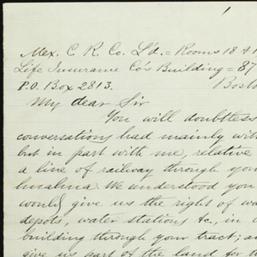 Mex. C R Co. L'd. = Rooms 18 & 1
Life Insurance Co's Building = 87
P.O. Box 2813. Bosto
My dear Sir
You will doubtless
conversations had mainly with
but in part with me, relative
a line of railway through you
We understood you
would give us the right of wa
depots, water stations &c, in c
building through your tract; an
give us part of the land for t